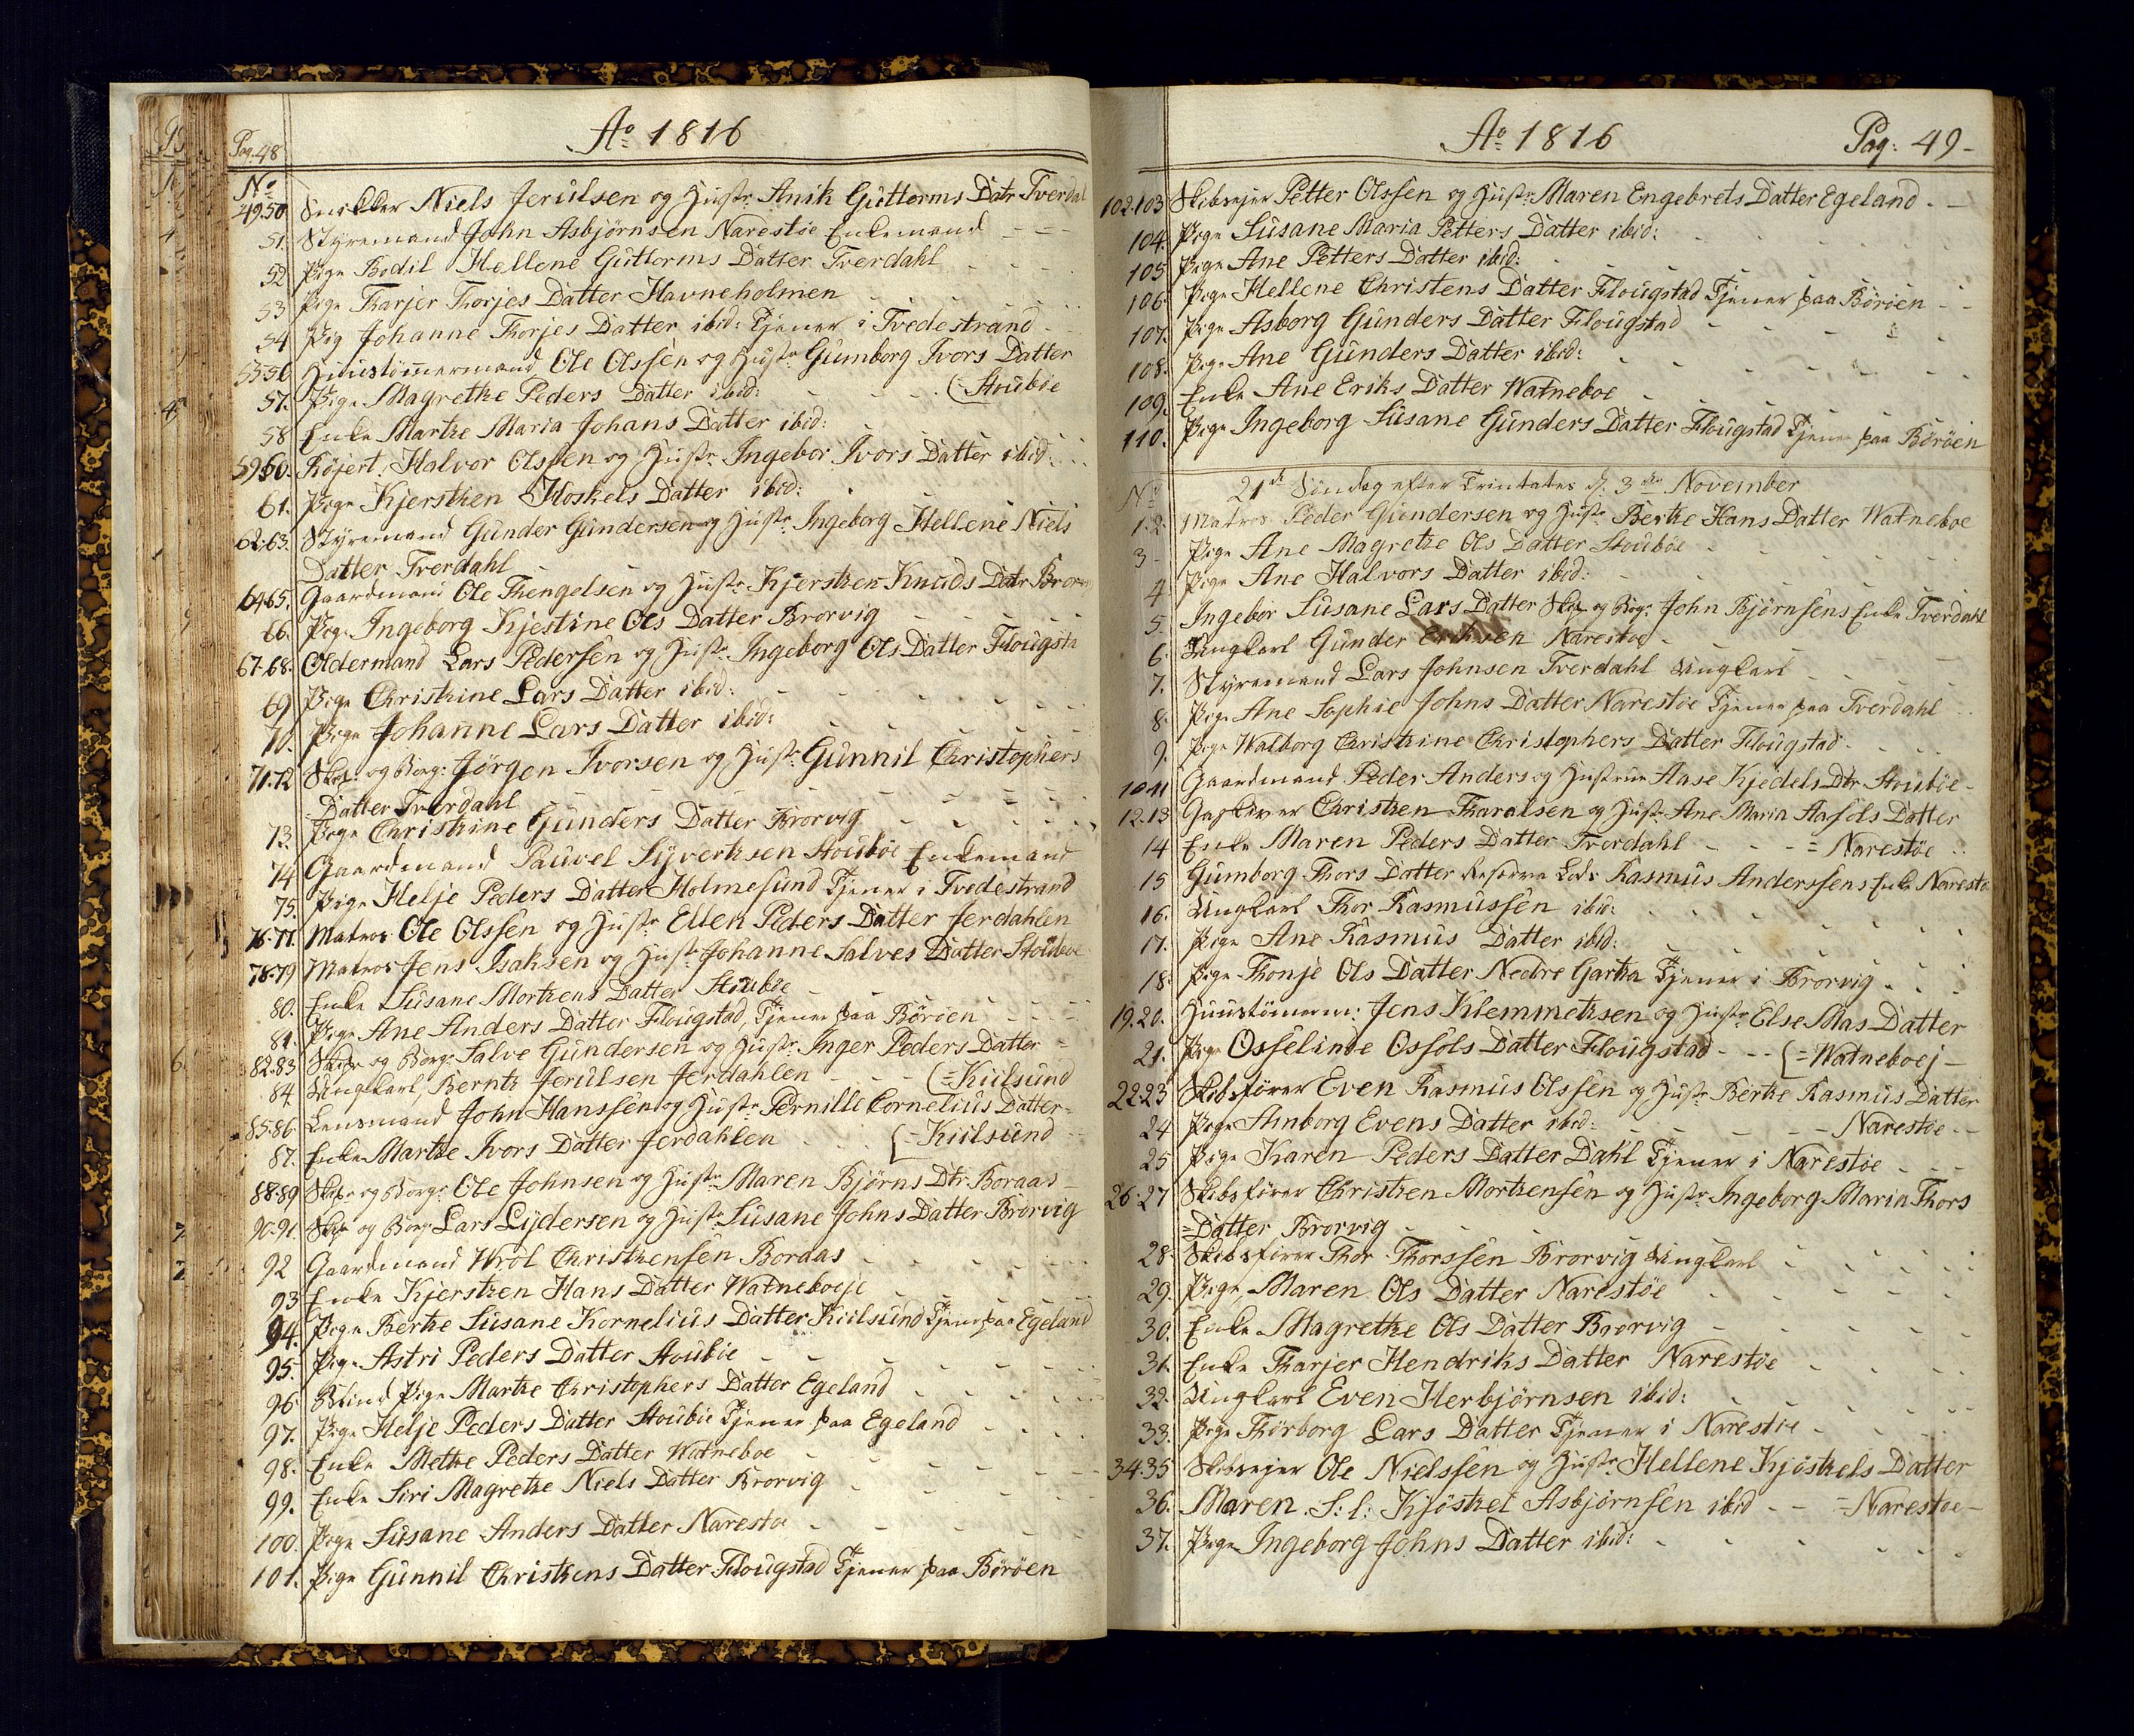 Pag. 48
Ao 1816
No
49.50 Snikker Niels Jerulsen og Hustr. Anik Guttorms Datr Tverdal
51. Styremand John Asbjørnsen Narestøe Enkemand
52 Pige Bodil Hellene Guttorms Datter Tverdahl
53 Pige Tharjer Thorjes Datter Havneholmen
54 Pig Johanne Thorjes Datter ibid: Tjener i Tvedestrand
55.56 Huustømmermand Ole Olssen og Hustr Gumborg Ivors Datter
57. Pige Magrethe Peders Datter ibid: (=Stoubøe
58 Enke Marthe Maria Johans Datter ibid:
59.60. Røjert: Halvor Olssen og Hustr. Ingebor Ivors Datter ibid:
61. Pige Kjersthen Hoskels Datter ibid:
62.63. Styremand Gunder Gundersen og Hustr. Ingeborg Hellene Niels
Datter Tverdahl
64.65. Gaardmand Ole Thengelsen og Hustr. Kjersthen Knuds Datr Brorvi
66. Pige Ingeborg Kjestine Ols Datter Brorvig
67.68. Oldermand Lars Pedersen og Hustr. Ingeborg Ols Datter Flougsta
69 Pige Christhine Lars Datter ibid:
70. Pige Johanne Lars Datter ibid:
71.72 Skip: og Borg: Jörgen Ivorsen og Hustr. Gunnil Christophers
Datter Tverdahl
73. Pige Christhine Gunders Datter Brorvig
74 Gaardmand Pauvel Syverthsen Stoubøe Enkemand
75. Pige Helje Peders Datter Holmesund Tjener i Tvedestrand
76.77. Matros Ole Olssen og Hustr. Ellen Peders Datter Jerdahlen
78.79 Matros Jens Isaksen og Hustr Johanne Salves Datter Stoubøe
80. Enke Susane Morthens Datter Stoubøe
81. Pige Ane Anders Datter Flougstad, Tjener paa Börøen
82.83 Skipr og Borgr Salve Gundersen og Hustr. Inger Peders Datter =
84 Ungkarl, Bernth Jerulsen Jerdahlen (=Kiilsund
85.86. Lensmand John Hanssen og Hustr. Pernille Cornelius Datter=
87. Enke Marthe Ivors Datter Jerdahlen (=Kiilsund
88.89 Skipr og Borgr. Ole Johnsen og Hustr Maren Bjørns Dtr. Boraas
90.91. Skipr og Borgr Lars Lydersen og Hustr. Susane Johns Datter Brorvig
92 Gaardmand Wrol Christhensen Boraas
93 Enke Kjersthen Hans Datter Watneboeje
94. Pige Berthe Susane Kornelius Datter Kiilsund Tjener paa Egeland
95. Pige Astri Peders Datter Stoubøe
96 Blind Pige Marthe Christophers Datter Egeland
97. Pige Helje Peders Datter Stoubøe Tjener paa Egeland
98. Enke Methe Peders Datter Watneboe
99. Enke Siri Magrethe Niels Datter Brorvig
100. Pige Susane Anders Datter Narestøe
101. Pige Gunnil Christhens Datter Flougstad Tjener paa Börøen
Ao 1816 Pag: 49-
102.103 Skibsejer Petter Olssen og Hustr. Maren Engebrets Datter Egeland
104. Pige Susane Maria Petters Datter ibid:
105 Pige Ane Petters Datter ibid:
106 Pige Hellene Christens Datter Flougstad Tjener paa Börøen
107. Pige Asborg Gunders Datter Flougstad
108. Pige Ane Gunders Datter ibid:
109. Enke Ane Eriks Datter Watneboe
110. Pige Ingeborg Susane Gunders Datter Flougstad Tjener paa Börøen
21de Söndag efter Trinitates d: 3die November
No
1.2. Matros Peder Gundersen og Hustr. Berthe Hans Datter Watneboe
3 Pige Ane Magrethe Ols Datter Stoubøe
4 Pige Ane Halvors Datter ibid:
5. Ingebor Susane Lars Datter Skip og Borgr. John Bjørnsens Enke Tverdahl
6. Ungkarl Gunder Erichsen Narestøe
7. Styremand Lars Johnsen Tverdahl Ungkarl
8. Pige Ane Sophie Johns Datter Narestøe Tjener paa Tverdahl
9. Pige Walborg Christhine Christophers Datter Flougstad
10.11 Gaardmand Peder Anders og Hustrue Aase Kjedels Dtr. Stoubøe
12.13 Christhen Tharalsen og Hustr. Ane Maria Aasols Datter
14 Enke Maren Peders Datter Tverdahl = Narestøe
15 Gumborg Thors Datter Lods Rasmus Anderssens Enke Narestø
16. Ungkarl Thor Rasmussen ibid:
17. Pige Ane Rasmus Datter ibid:
18. Pige Thonje Ols Datter Nedre Gartha Tjener i Brorvig
19.20. Huustömerm: Jens Klemmethsen og Hustr Else Mas Datter
21. Pige Osselinde Ossols Datter Flougstad (=Watneboej
22.23 Skibsförer Even Rasmus Olssen og Hustr Berthe Rasmus Datter
24 Pige Amborg Evens Datter ibid: Narestøe
25 Pige Karen Peders Datter Dahl Tjener i Narestøe
26.27 Skibsfører Christhen Morthensen og Hustr. Ingeborg Maria Thors
=Datter Brorvig
28. Skibsfører Thor Thorssen Brorvig Ungkarl
29. Pige Maren Ols Datter Narestøe
30. Enke Magrethe Ols Datter Brorvig
31. Enke Tharjer Hendriks Datter Narestøe
32. Ungkarl Even Herbjørnsen ibid:
33. Pige Thörborg Lars Datter Tjener i Narestøe
34.35 Skibsejer Ole Nielssen og Hustr. Hellene Kjösthels Datter
36. Maren S: l: Kjösthel Asbjørnsen ibid =Narestøe
37. Pige Ingeborg Johns Datter ibid: